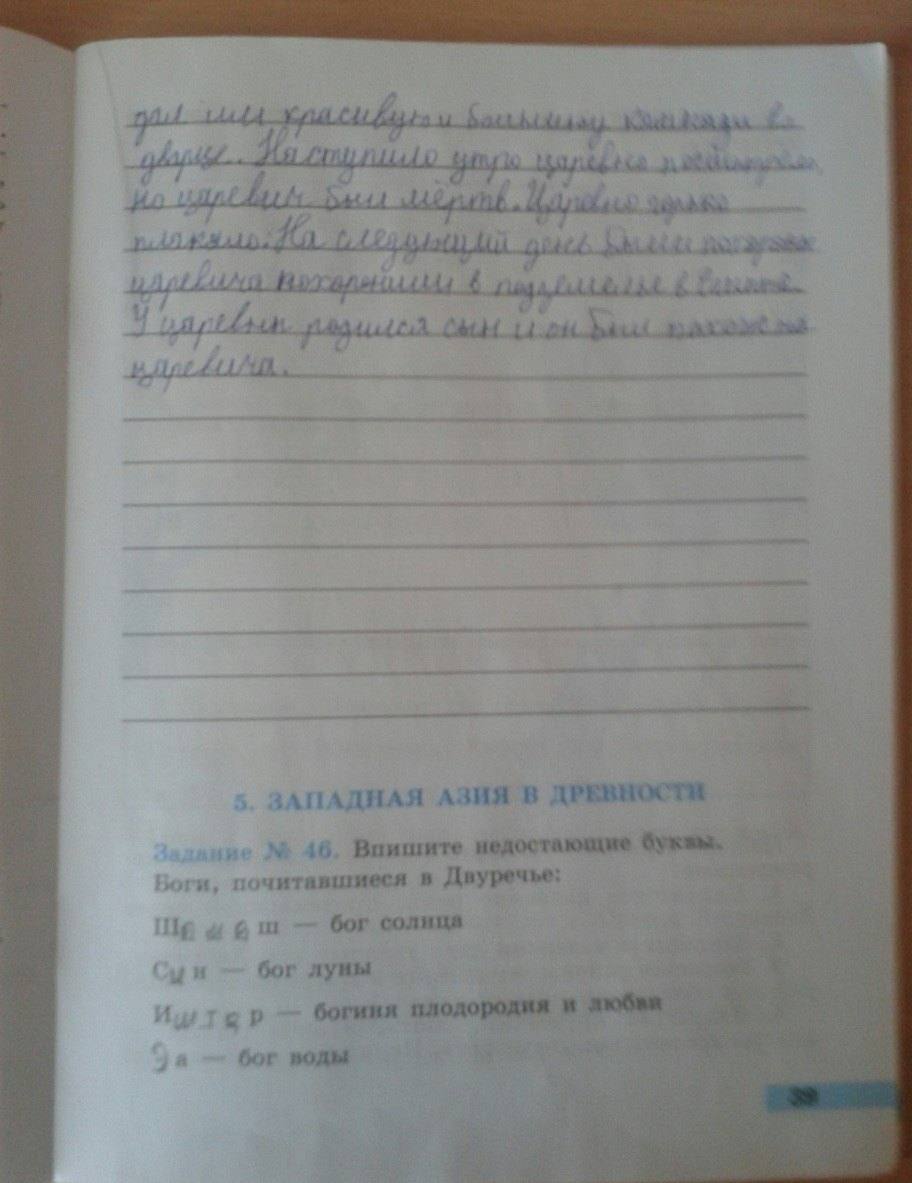 дал им красивую и большую комнату во
дворце. Наступило утро царевна
но царевич был мёртв. Царевна горько
плакала. На следующий день были похороны
царевича похоронили в подземелье в
У царевны родился сын и он был похож на
царевича.
5. ЗАПАДНАЯ АЗИЯ В ДРЕВНОСТИ
Задание № 46. Впишите недостающие буквы.
Боги, почитавшиеся в Двуречье:
Шамаш — бог солнца
Син — бог луны
Иштар — богиня плодородия и любви
Эа — бог воды
39